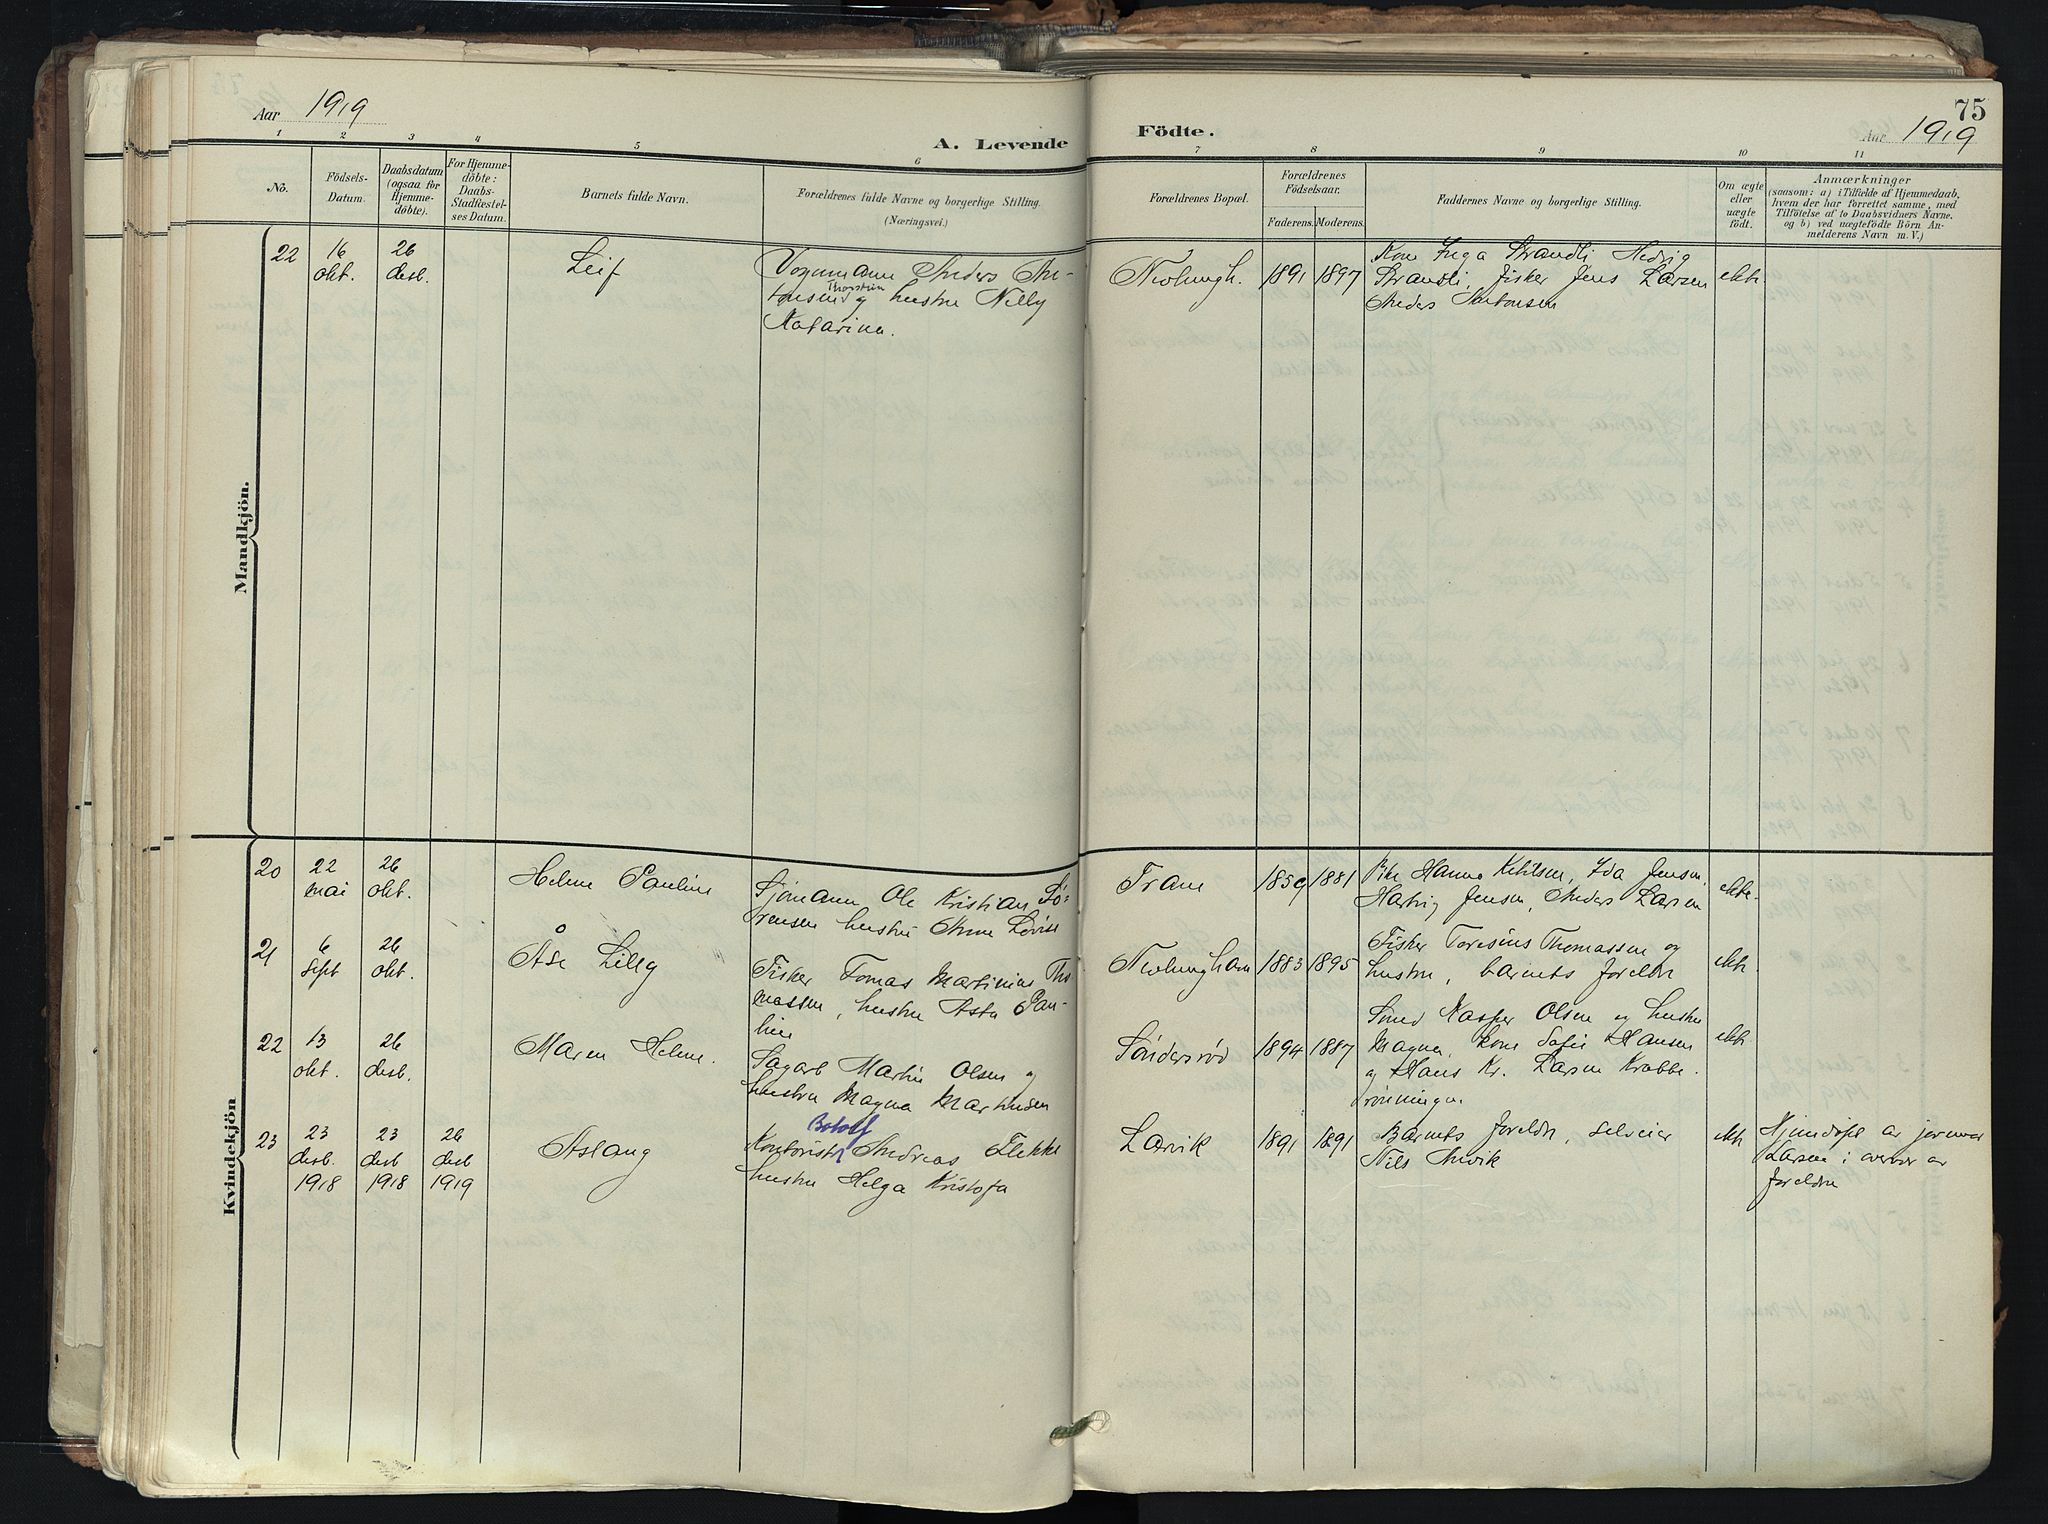 Aar 1919
A. Levende
Födte.
75
Aar 1919
1 2 3 4 5 6 7 8 9 10 11
No.
Födsels-
Datum.
Daabsdatum
(ogsaa for
Hjemme-
döbte).
For Hjemme-
döbte:
Daabs-
Stadfæstel-
ses Datum.
Barnets fulde Navn.
Forældrenes fulde Navne og borgerlige Stilling.
(Næringsvei.)
Forældrenes Bopæl.
Forældrenes
Födselsaar.
Faderens. Moderens.
Faddernes Navne og borgerlige Stilling.
Om ægte
eller
uægte
födt.
Anmærkninger
(saasom: a) i Tilfælde af Hjemmedaab,
hvem der har forrettet samme, med
Tilföielse af to Daabsvidners Navne.
og b) ved uægtefödte Börn An-
melderens Navn m. V.)
Mandkjön.
22
16
okt.
26
desb.
Leif
Vognmann Anders An-
tonsen Thorstein og hustru Nelly
Katarina.
Nevlungh.
1891 1897
Kone Inga Strandli Hedvig
Strandli, Fisker Jens Larsen
Anders Antonsen
ekte
Kvindekjön
20
22
mai
26
okt.
Helene Pauline
Sjömann Ole Kristian Sö-
rensen hustru Anne Lovise
Fram
1859 1881
Pike Hanna Ketilsen, Ida Jensen,
Hartvig Jensen, Anders Larsen
ekte.
21
6
sept
26
okt.
Åse Lilly
Fisker Tomas Martinius Tho
massen, hustru Asta Pau-
line
Nevlunghavn
1883 1895
Fisker Toresius Thomassen og
hustru, barnets foreldre
ekte
22
13
okt.
26
desb.
Maren Helene.
Sagarb Martin Olsen og
hustru Magna Martinsen
Söndersröd
1894 1887
Smed Kasper Olsen og hustru
Magna, kone Sofie Hansen
og Hans Kr. Larsen Krabbe-
rönningen
ekte
23
23
desb.
1918
23
desb
1918
26
desb
1919
Aslaug
Botolf
Kontorist Andreas Flekke
hustru Helga Kristofa
Larvik
1891 1891
Barnets foreldre, selveier
Nils Anvik
ekte
Hjemdöpt av jormor
Larsen i overvær av
foreldre